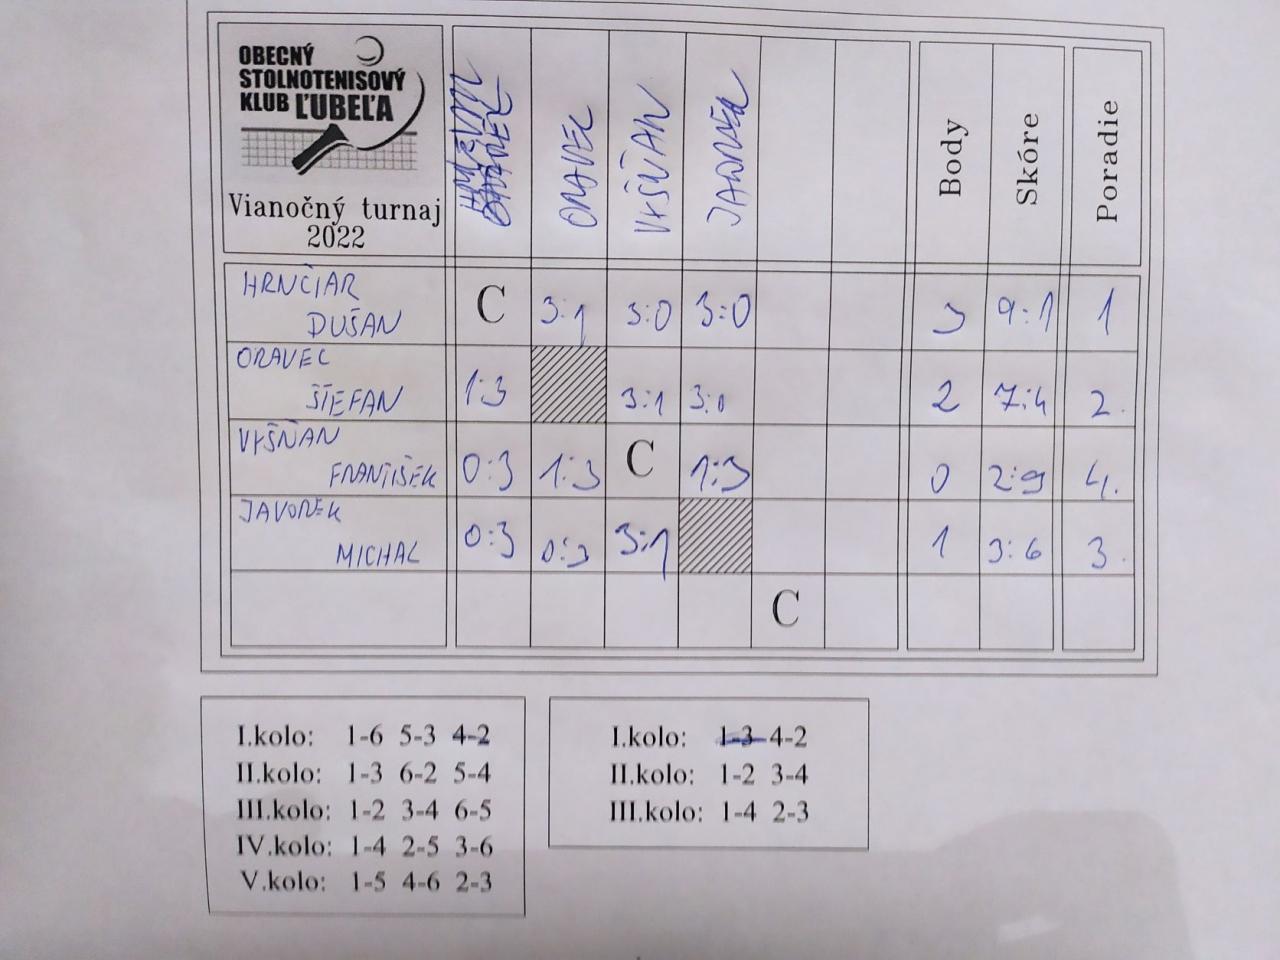 OBECNÝ
STOLNOTENISOVÝ
KLUB ĽUBEĽA
Vianočný turnaj
2022
ORAVEC
VYŠŇAN
JAVOREK
Body
Skóre
Poradie
HRNČIAR
DUŠAN
C 3:1 3:0 3:0 3 9:1 1
ORAVEC
ŠTEFAN
1:3 3:1 3:0 2 7:4 2.
VYŠŇAN
FRANTIŠEK
0:3 1:3 C 1:3 0 2:9 4.
JAVOREK
MICHAL
0:3 0:3 3:1 1 3:6 3.
C
I.kolo: 1-6 5-3 4-2
II.kolo: 1-3 6-2 5-4
III.kolo: 1-2 3-4 6-5
IV.kolo: 1-4 2-5 3-6
V.kolo: 1-5 4-6 2-3
I.kolo: 1-3 4-2
II.kolo: 1-2 3-4
III.kolo: 1-4 2-3